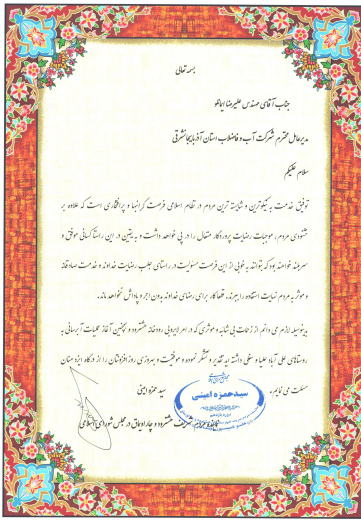 بسمه تعالی
جناب آقای مهندس علیرضا ایمانلو
مدیرعامل محترم شرکت آب و فاضلاب استان آذربایجانشرقی
سلام علیکم
توفیق خدمت به نیکوترین و شایسته ترین مردم در نظام اسلامی فرصت گرانبها و پرافتخاری است که علاوه بر
خشنودی مردم، موجبات رضایت پروردگار متعال را در پی خواهد داشت و به یقین در این راستا کسانی موفق و
سربلند خواهند بود که بتوانند به خوبی از این فرصت مسئولیت در راستای جلب رضایت خداوند و خدمت صادقانه
و موثر به مردم نهایت استفاده را ببرند. قطعا کار برای رضای خداوند بدون اجر و پاداش نخواهد ماند.
بدینوسیله لازم می دانم از زحمات بی شائبه و موثری که در امر لایروبی رودخانه هشترود و همچنین آغاز عملیات آبرسانی به
روستاهای علی آباد علیا و سفلی داشته اید تقدیر و تشکر نموده و موفقیت و پیروزی روزافزونتان را از درگاه ایزد منان
مسئلت می نمایم.
سید حمزه امینی
سید حمزه امینی
نماینده مردم شریف هشترود و چاراویماق در مجلس شورای اسلامی